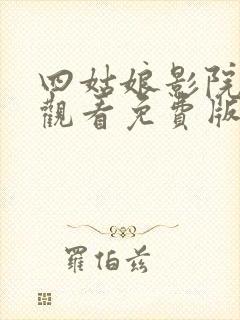 四姑娘影院
觀看免費版
羅伯茲